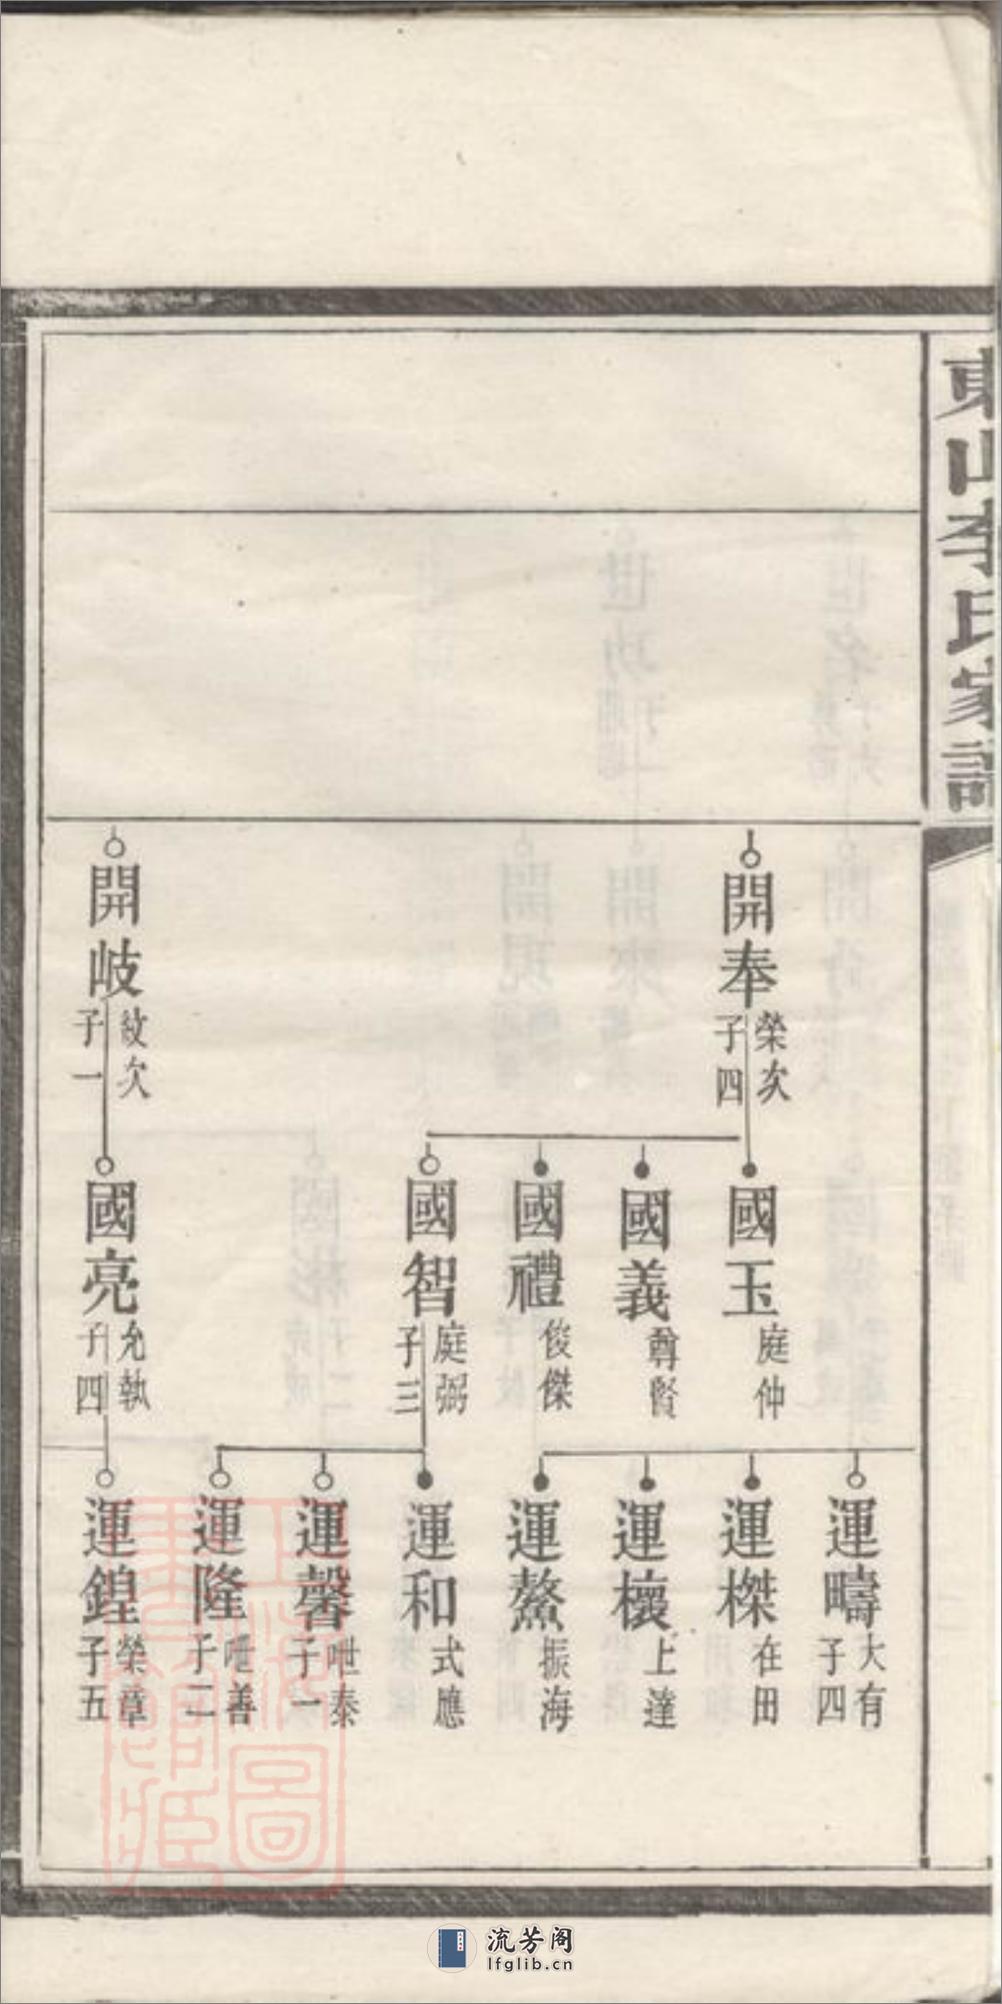 東山李氏家譜
開奉
榮次
子四
開岐
紋次
子一
國玉
庭仲
國義
尊賢
國禮
俊傑
國智
庭弼
子三
國亮
允執
子四
運疇
大有
子四
運榤
在田
運櫰
上達
運鰲
振海
運和
式應
運馨
呭泰
子一
運隆
呭善
子二
運鍠
榮章
子五
上海圖
書館藏
流芳阁
lfglib.cn